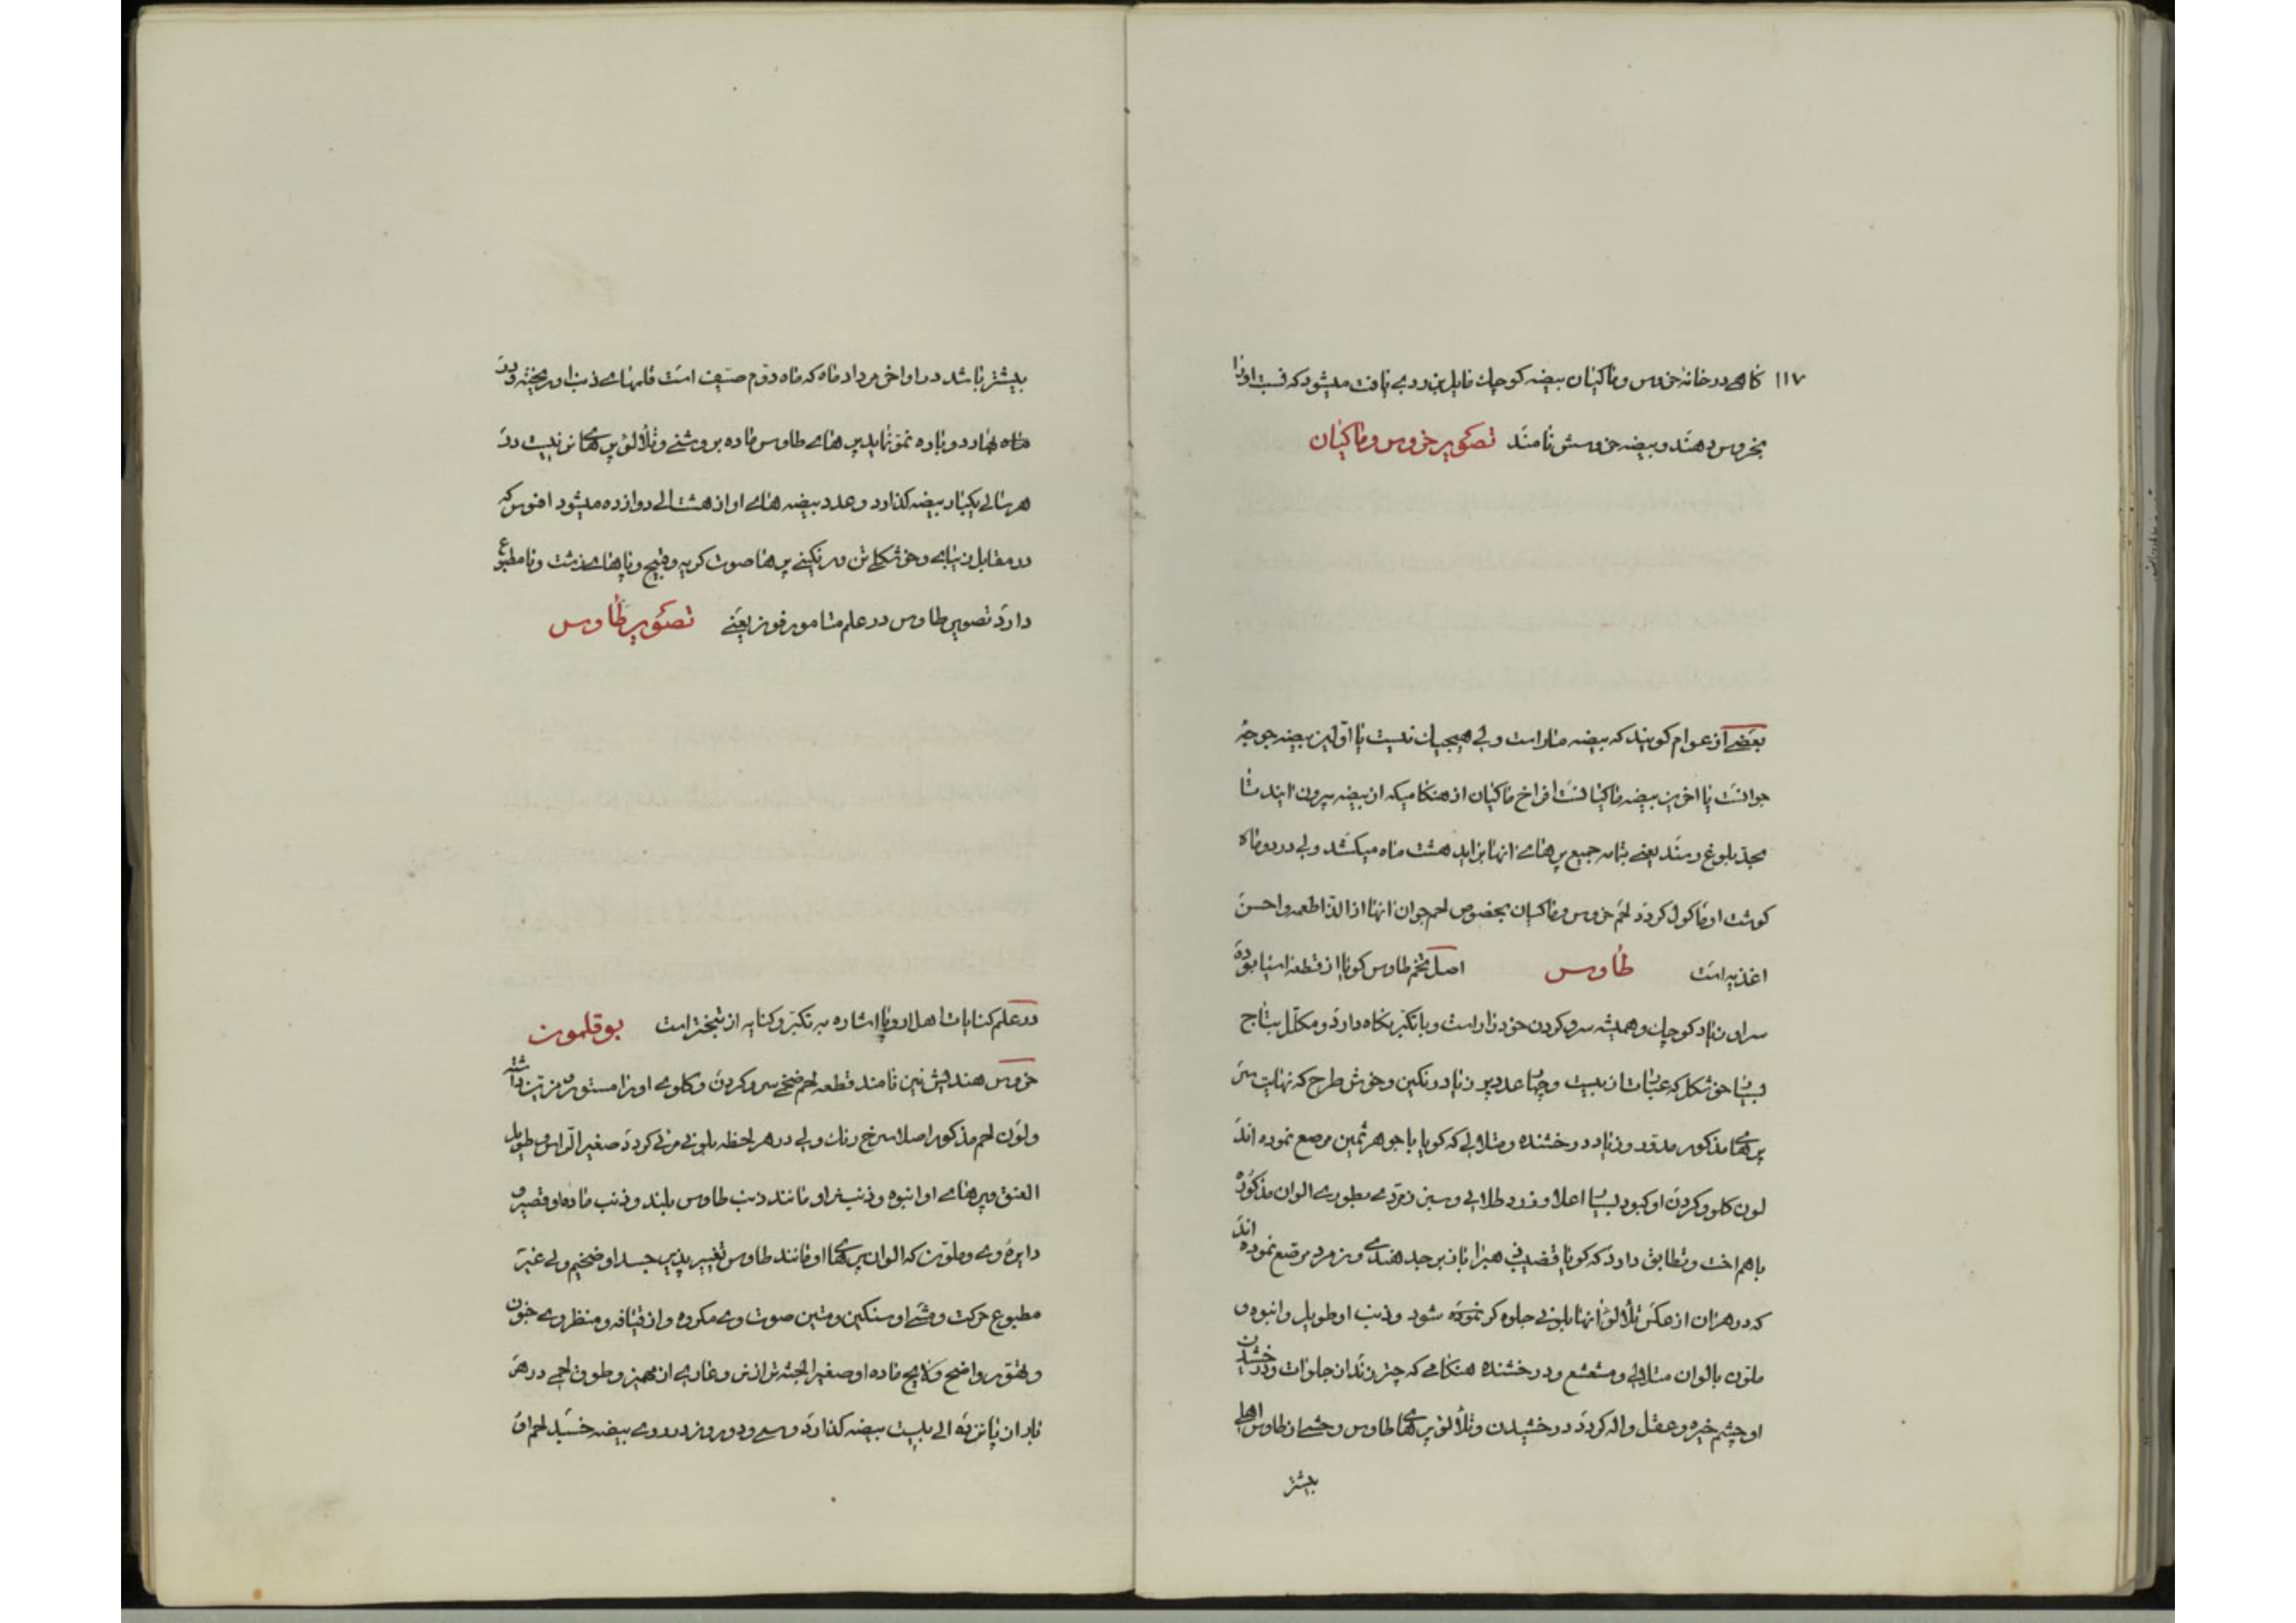 ۱۱۷
گاهی در خانهٔ خروس و ماکیان بیضه کوچک مایل بزردی یافت میشود که نسبت او را
بخروس دهند و بیضه خروسش نامند تصویر خروس و ماکیان
بعضی از عوام گویند که بیضه مار است ولی هیچیک نیست یا اولین بیضه جوجهٔ
جوانست یا اخرین بیضه ماکیانست افراخ ماکیان از هنگامیکه از بیضه بیرون ایند تا
بحد بلوغ رسند یعنی بتمامه جمیع پرهای انها براید هشت ماه میکشد ولی در دو ماه
کوشت او ماکول کردد لحم خروس و ماکیان بخصوص لحم جوان انها از الذ اطعمه و احسن
اغذیه است طاوس اصل تخم طاوس کویا از قطعه اسیا بوده
سر او زیاد کوچک و همیشه سر و کردن خود را راست و با تکبر نگاه دارد و مکلل بتاج
بسیار خوشکل که عبارت از بیست و چهار عدد پر زیاد رنکین و خوش طرح که نهایت سر
پرهای مذکور مدور و زیاد درخشنده و متلالی که کویا با جوهر ثمین مرصع نموده اند
لون کلو و کردن او کبود بسیار اعلا و زرد طلایی و سبز زمردی بطوری الوان مذکوره
باهم اخت و تطابق دارد که کویا قضیب هزار باز برجد هندی و زمرد مرصع نموده اند
که در هر ان از عکس تلألؤ انها بلونی جلوه کر نموده شود و ذنب او طویل و انبوه و
ملون بالوان متلالی و مشعشع و درخشنده هنکامی که چتر زند از جلوات و درخشیدن
او چشم خیره و عقل واله کردد درخشیدن و تلألؤ پرهای طاوس وحشی از طاوس اهلی
بیشتر
بیشتر باشد در اواخر مرداد ماه که ماه دوم صیف است قلمهای ذنب او ریخته و در
ماه بهار دوباره نمو نماید پرهای طاوس ماده بروشنی و تلألؤ پرهای نر نیست در
هر سالی یکبار بیضه کذارد و عدد بیضه های او از هشت الی دوازده میشود افسوس که
در مقابل زیبایی و خوشکلی تن و رنکینی پرها صوت کریه و قبیح و پاهای زشت و نامطبوع
دارد تصویر طاوس در علم متامورفوز یعنی تصویر طاوس
در علم کنایات اهل اروپا اشاره به تکبر و کنایه از تبختر است بوقلمون
خروس هندیش نیز نامند قطعه لحم ضخی سر و کردن و کلوی او را مستور و مزین داشته
و لون لحم مذکور اصلا سرخ رنک ولی در هر لحظه بلونی مرئی کردد صغیر الراس و طویل
العنق و پرهای او انبوه و ذنب نر او مانند ذنب طاوس بلند و ذنب ماده او قصیر و
دایره وی و ملون که الوان پرهای او مانند طاوس تغییر پذیر جسد او ضخیم ولی غیر
مطبوع حرکت و مشی او سنکین و متین صوت وی مکروه و از قیافه و منظر وی خون
و تهور واضح و لایح ماده او صغیر الجثه تر از نر و عاری از مهمیز و طوق لحمی در هر
بار از پانزده الی بیست بیضه کذارد و سی و دو روز در روی بیضه خسبد لحم او